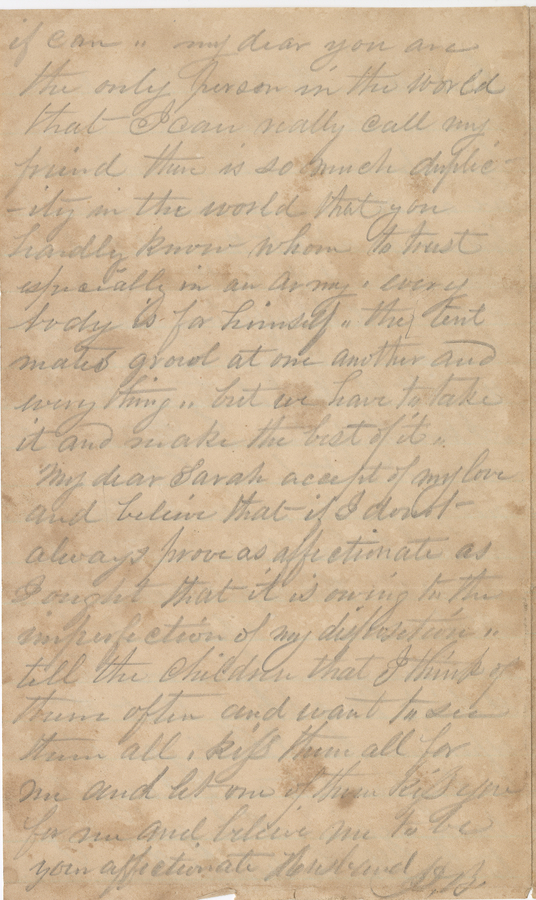 if can " my dear you are
the only person in the world
that I can really call my
friend thare is so much duplic-
-ity in the world that you
hardly know whom to trust
especially in an army " every
body is for himself " the tent
mates growl at one another and
every thing " but we have to take
it and make the best of it "
My dear Sarah accept of my love
and believe that if I dont
always prove as affectionate as
I ought that it is owing to the
imperfection of my disposition "
tell the children that I think of
them often and want to see
them all , kiss them all for
me and let one of them kiss you
for me and believe me to be
your affectionate Husband